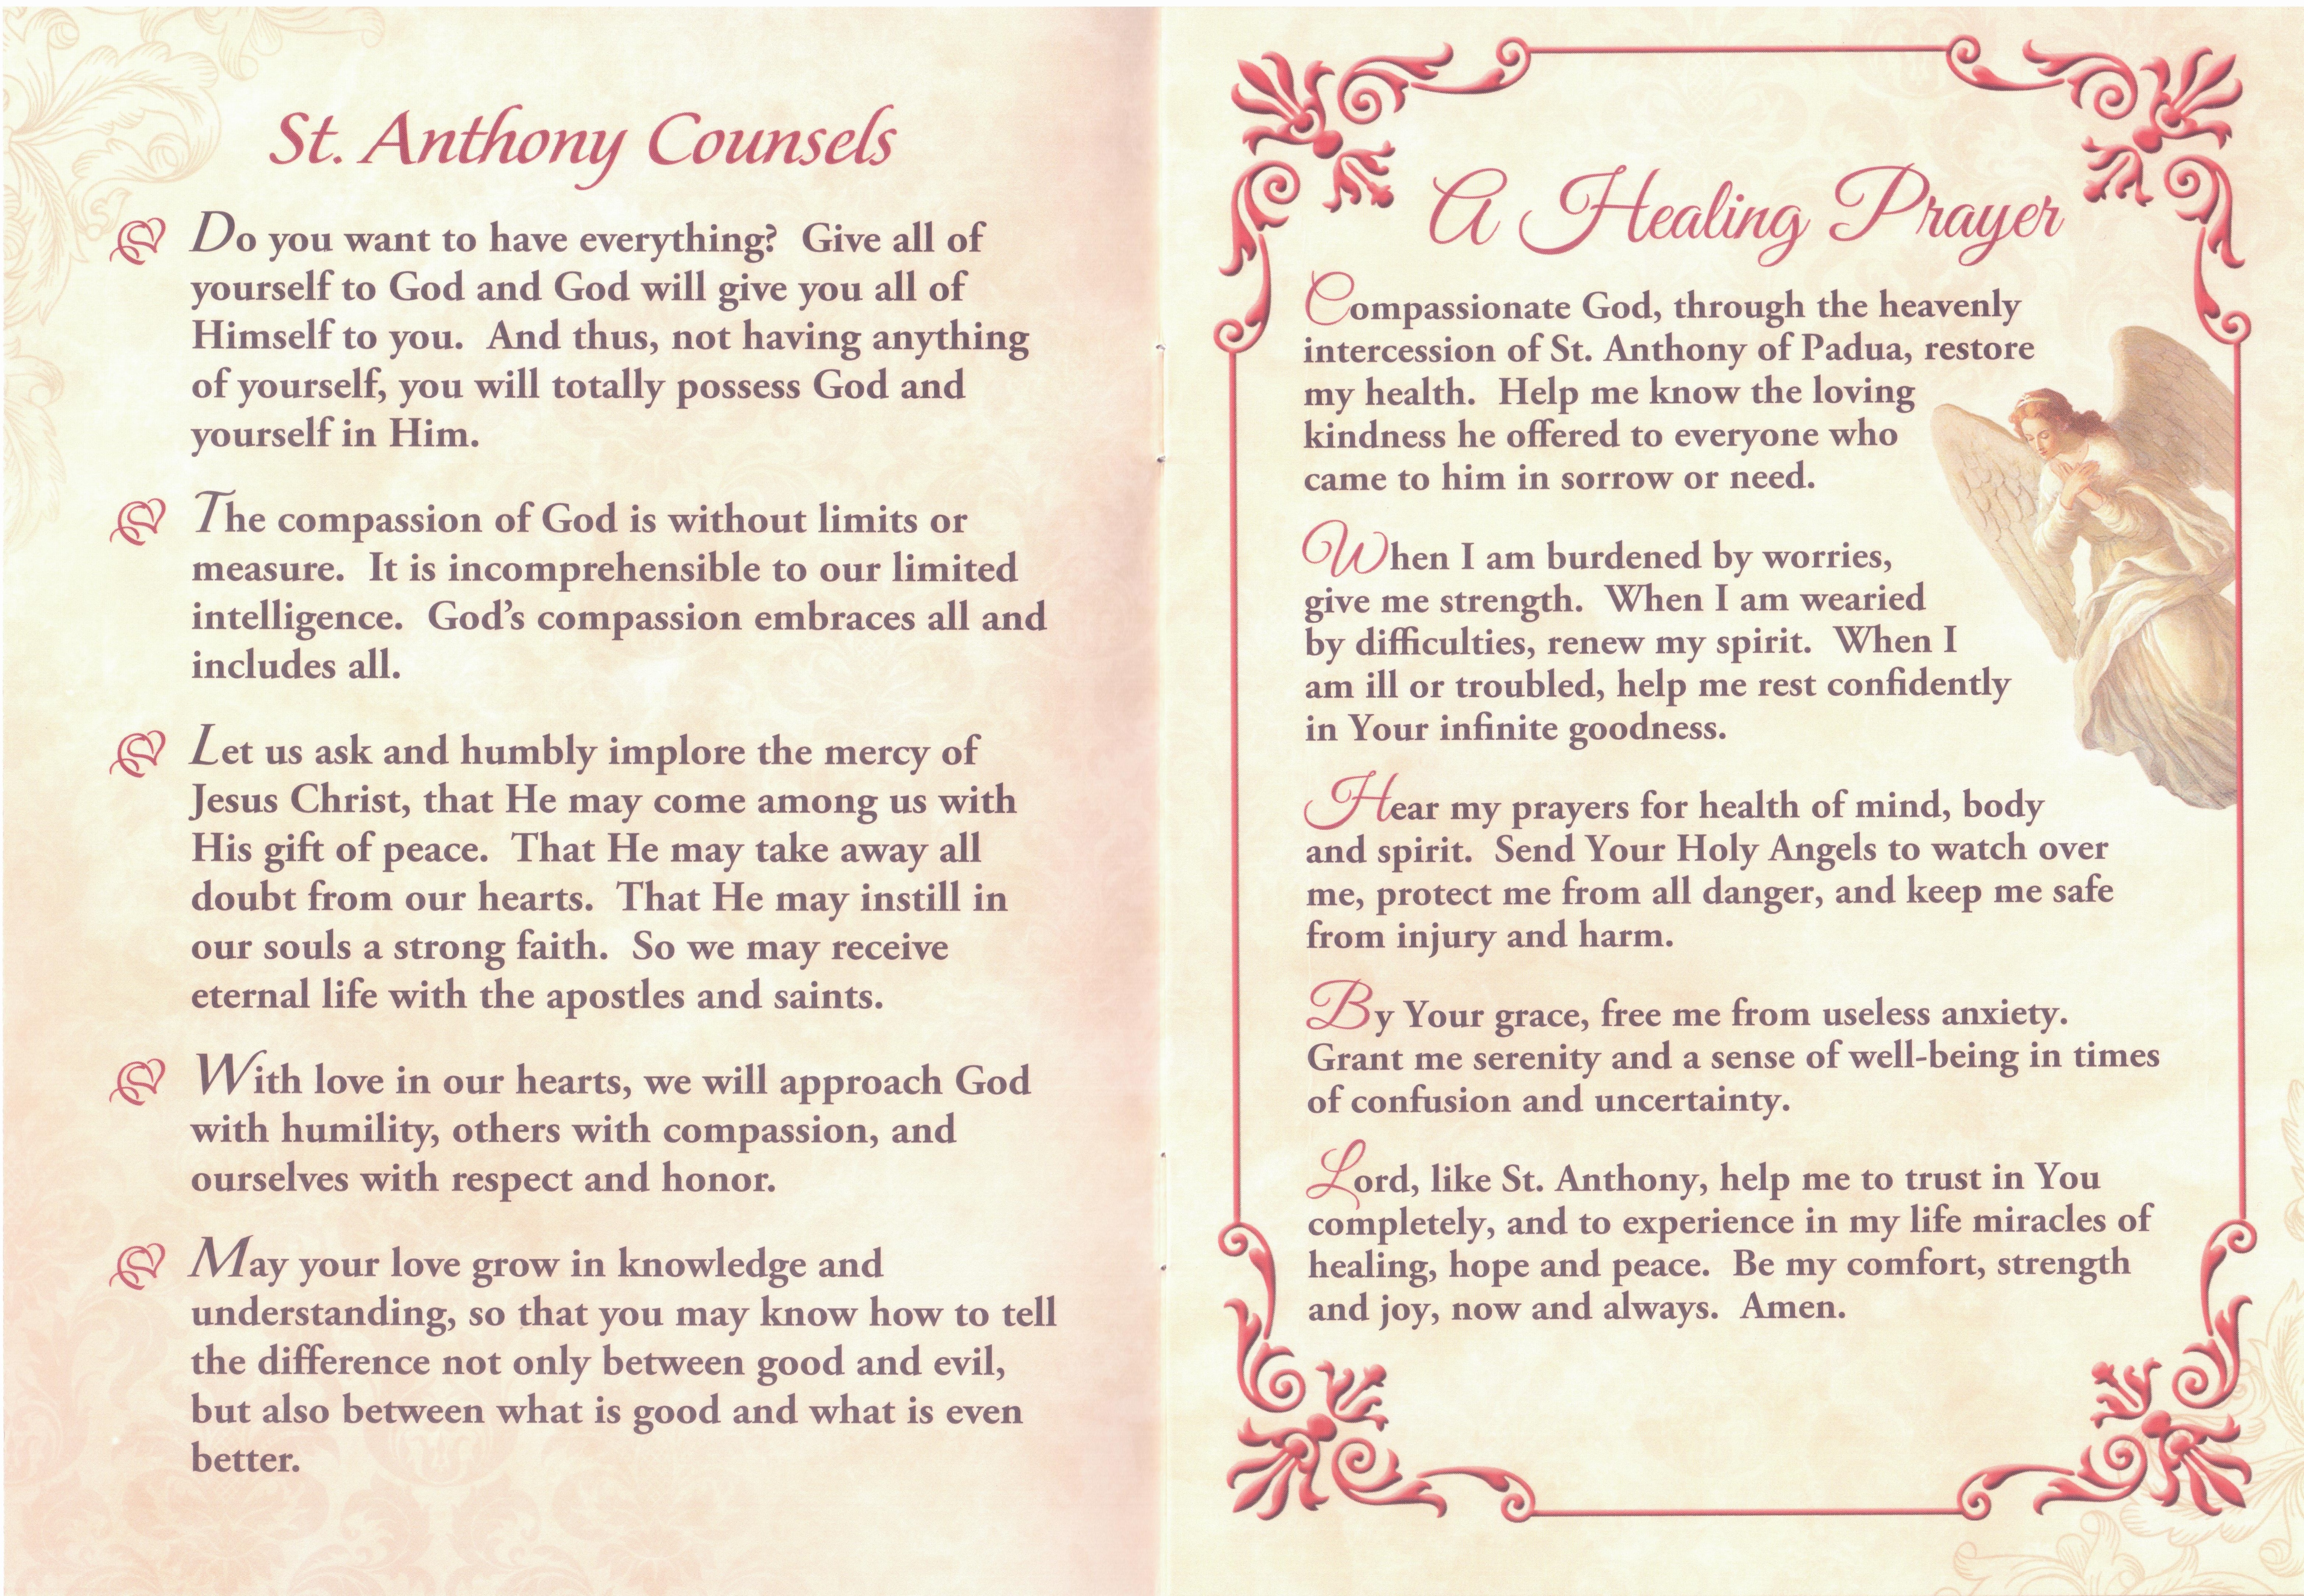 St. Anthony Counsels
Do you want to have everything? Give all of
yourself to God and God will give you all of
Himself to you. And thus, not having anything
of yourself, you will totally possess God and
yourself in Him.
The compassion of God is without limits or
measure. It is incomprehensible to our limited
intelligence. God's compassion embraces all and
includes all.
Let us ask and humbly implore the mercy of
Jesus Christ, that He may come among us with
His gift of peace. That He may take away all
doubt from our hearts. That He may instill in
our souls a strong faith. So we may receive
eternal life with the apostles and saints.
With love in our hearts, we will approach God
with humility, others with compassion, and
ourselves with respect and honor.
May your love grow in knowledge and
understanding, so that you may know how to tell
the difference not only between good and evil,
but also between what is good and what is even
better.
A Healing Prayer
Compassionate God, through the heavenly
intercession of St. Anthony of Padua, restore
my health. Help me know the loving
kindness he offered to everyone who
came to him in sorrow or need.
When I am burdened by worries,
give me strength. When I am wearied
by difficulties, renew my spirit. When I
am ill or troubled, help me rest confidently
in Your infinite goodness.
Hear my prayers for health of mind, body
and spirit. Send Your Holy Angels to watch over
me, protect me from all danger, and keep me safe
from injury and harm.
By Your grace, free me from useless anxiety.
Grant me serenity and a sense of well-being in times
of confusion and uncertainty.
Lord, like St. Anthony, help me to trust in You
completely, and to experience in my life miracles of
healing, hope and peace. Be my comfort, strength
and joy, now and always. Amen.